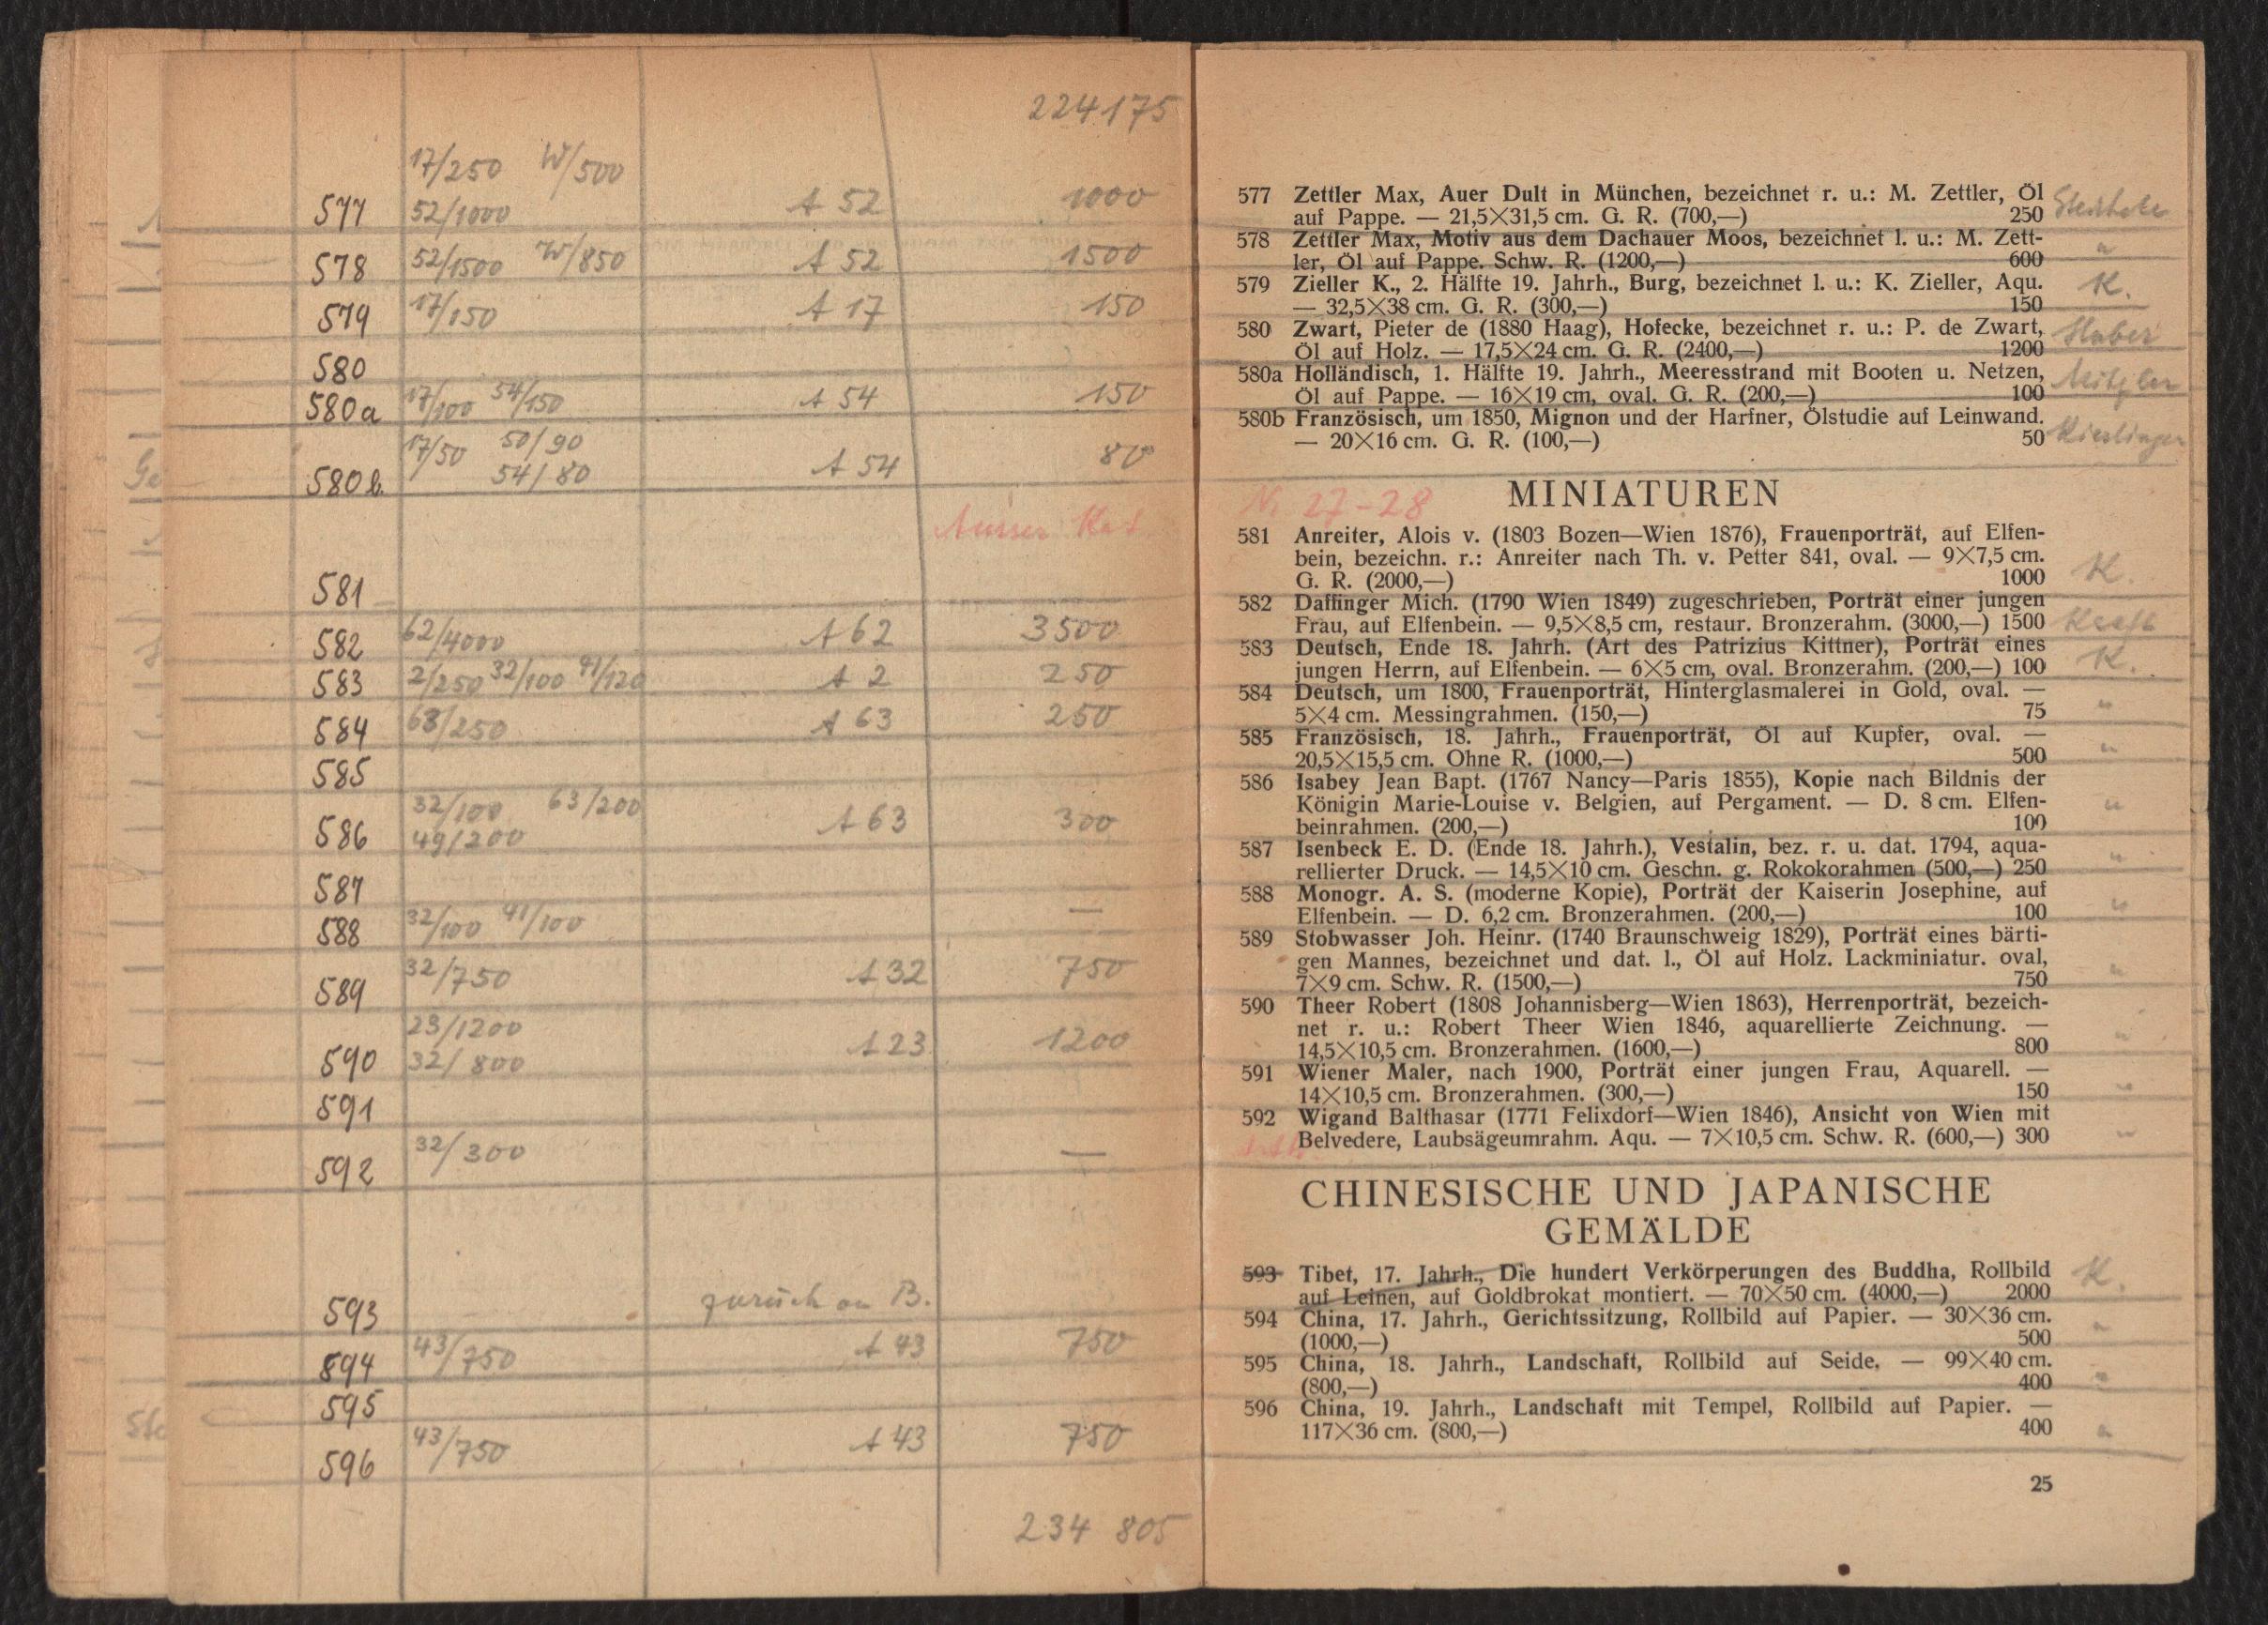 224175
17/250 W/500
577 52/1000 A 52 1000
578 52/1500 W/850 A 52 1500
579 17/150 A 17 150
580
580a 17/100 54/150 A 54 150
17/50 50/90
580b. 54/80 A 54 80
Ausser Kat.
581
582 62/4000 A 62 3500
583 2/250 32/100 41/120 A 2 250
584 63/250 A 63 250
585
32/100 63/200
586 49/200 A 63 300
587
588 32/100 41/100 —
589 32/750 A 32 750
23/1200
590 32/800 A 23 1200
591
592 32/300 —
593 zurück an B.
594 43/750 A 43 750
595
596 43/750 A 43 750
234 805
577 Zettler Max, Auer Dult in München, bezeichnet r. u.: M. Zettler, Öl
auf Pappe. — 21,5×31,5 cm. G. R. (700,—) 250
578 Zettler Max, Motiv aus dem Dachauer Moos, bezeichnet l. u.: M. Zett-
ler, Öl auf Pappe. Schw. R. (1200,—) 600
579 Zieller K., 2. Hälfte 19. Jahrh., Burg, bezeichnet l. u.: K. Zieller, Aqu. K.
— 32,5×38 cm. G. R. (300,—) 150
580 Zwart, Pieter de (1880 Haag), Hofecke, bezeichnet r. u.: P. de Zwart, Huber
Öl auf Holz. — 17,5×24 cm. G. R. (2400,—) 1200
580a Holländisch, 1. Hälfte 19. Jahrh., Meeresstrand mit Booten u. Netzen,
Öl auf Pappe. — 16×19 cm, oval. G. R. (200,—) 100
580b Französisch, um 1850, Mignon und der Harfner, Ölstudie auf Leinwand.
— 20×16 cm. G. R. (100,—) 50 Kieslinger
MINIATUREN
N. 27-28
581 Anreiter, Alois v. (1803 Bozen—Wien 1876), Frauenporträt, auf Elfen-
bein, bezeichn. r.: Anreiter nach Th. v. Petter 841, oval. — 9×7,5 cm.
G. R. (2000,—) 1000 K.
582 Daffinger Mich. (1790 Wien 1849) zugeschrieben, Porträt einer jungen
Frau, auf Elfenbein. — 9,5×8,5 cm, restaur. Bronzerahm. (3000,—) 1500
583 Deutsch, Ende 18. Jahrh. (Art des Patrizius Kittner), Porträt eines
jungen Herrn, auf Elfenbein. — 6×5 cm, oval. Bronzerahm. (200,—) 100 K.
584 Deutsch, um 1800, Frauenporträt, Hinterglasmalerei in Gold, oval. —
5×4 cm. Messingrahmen. (150,—) 75 "
585 Französisch, 18. Jahrh., Frauenporträt, Öl auf Kupfer, oval. —
20,5×15,5 cm. Ohne R. (1000,—) 500 "
586 Isabey Jean Bapt. (1767 Nancy—Paris 1855), Kopie nach Bildnis der
Königin Marie-Louise v. Belgien, auf Pergament. — D. 8 cm. Elfen- "
beinrahmen. (200,—) 100
587 Isenbeck E. D. (Ende 18. Jahrh.), Vestalin, bez. r. u. dat. 1794, aqua-
rellierter Druck. — 14,5×10 cm. Geschn. g. Rokokorahmen (500,—) 250 "
588 Monogr. A. S. (moderne Kopie), Porträt der Kaiserin Josephine, auf
Elfenbein. — D. 6,2 cm. Bronzerahmen. (200,—) 100 "
589 Stobwasser Joh. Heinr. (1740 Braunschweig 1829), Porträt eines bärti-
gen Mannes, bezeichnet und dat. l., Öl auf Holz. Lackminiatur. oval, "
7×9 cm. Schw. R. (1500,—) 750
590 Theer Robert (1808 Johannisberg—Wien 1863), Herrenporträt, bezeich-
net r. u.: Robert Theer Wien 1846, aquarellierte Zeichnung. — "
14,5×10,5 cm. Bronzerahmen. (1600,—) 800
591 Wiener Maler, nach 1900, Porträt einer jungen Frau, Aquarell. —
14×10,5 cm. Bronzerahmen. (300,—) 150 "
592 Wigand Balthasar (1771 Felixdorf—Wien 1846), Ansicht von Wien mit
Belvedere, Laubsägeumrahm. Aqu. — 7×10,5 cm. Schw. R. (600,—) 300 "
CHINESISCHE UND JAPANISCHE
GEMÄLDE
593 Tibet, 17. Jahrh., Die hundert Verkörperungen des Buddha, Rollbild K.
auf Leinen, auf Goldbrokat montiert. — 70×50 cm. (4000,—) 2000
594 China, 17. Jahrh., Gerichtssitzung, Rollbild auf Papier. — 30×36 cm.
(1000,—) 500 "
595 China, 18. Jahrh., Landschaft, Rollbild auf Seide. — 99×40 cm.
(800,—) 400 "
596 China, 19. Jahrh., Landschaft mit Tempel, Rollbild auf Papier. —
117×36 cm. (800,—) 400 "
25